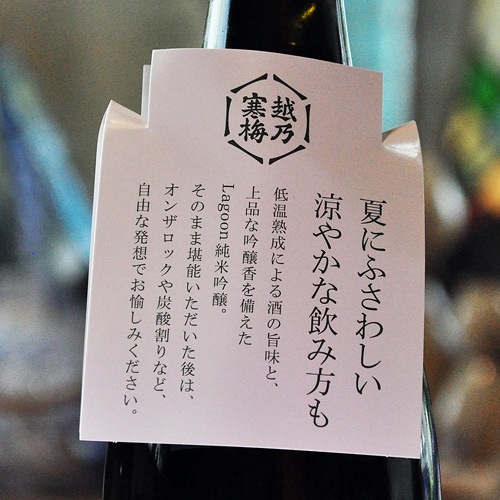 越乃
寒梅
夏にふさわしい
涼やかな飲み方も
低温熟成による酒の旨味と、
上品な吟醸香を備えた
Lagoon 純米吟醸。
そのまま堪能いただいた後は、
オンザロックや炭酸割りなど、
自由な発想でお愉しみください。